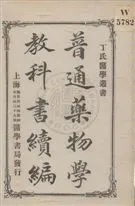 W
5782
丁氏醫學叢書
普通藥物學
教科書續編
上海
醫學書局發行